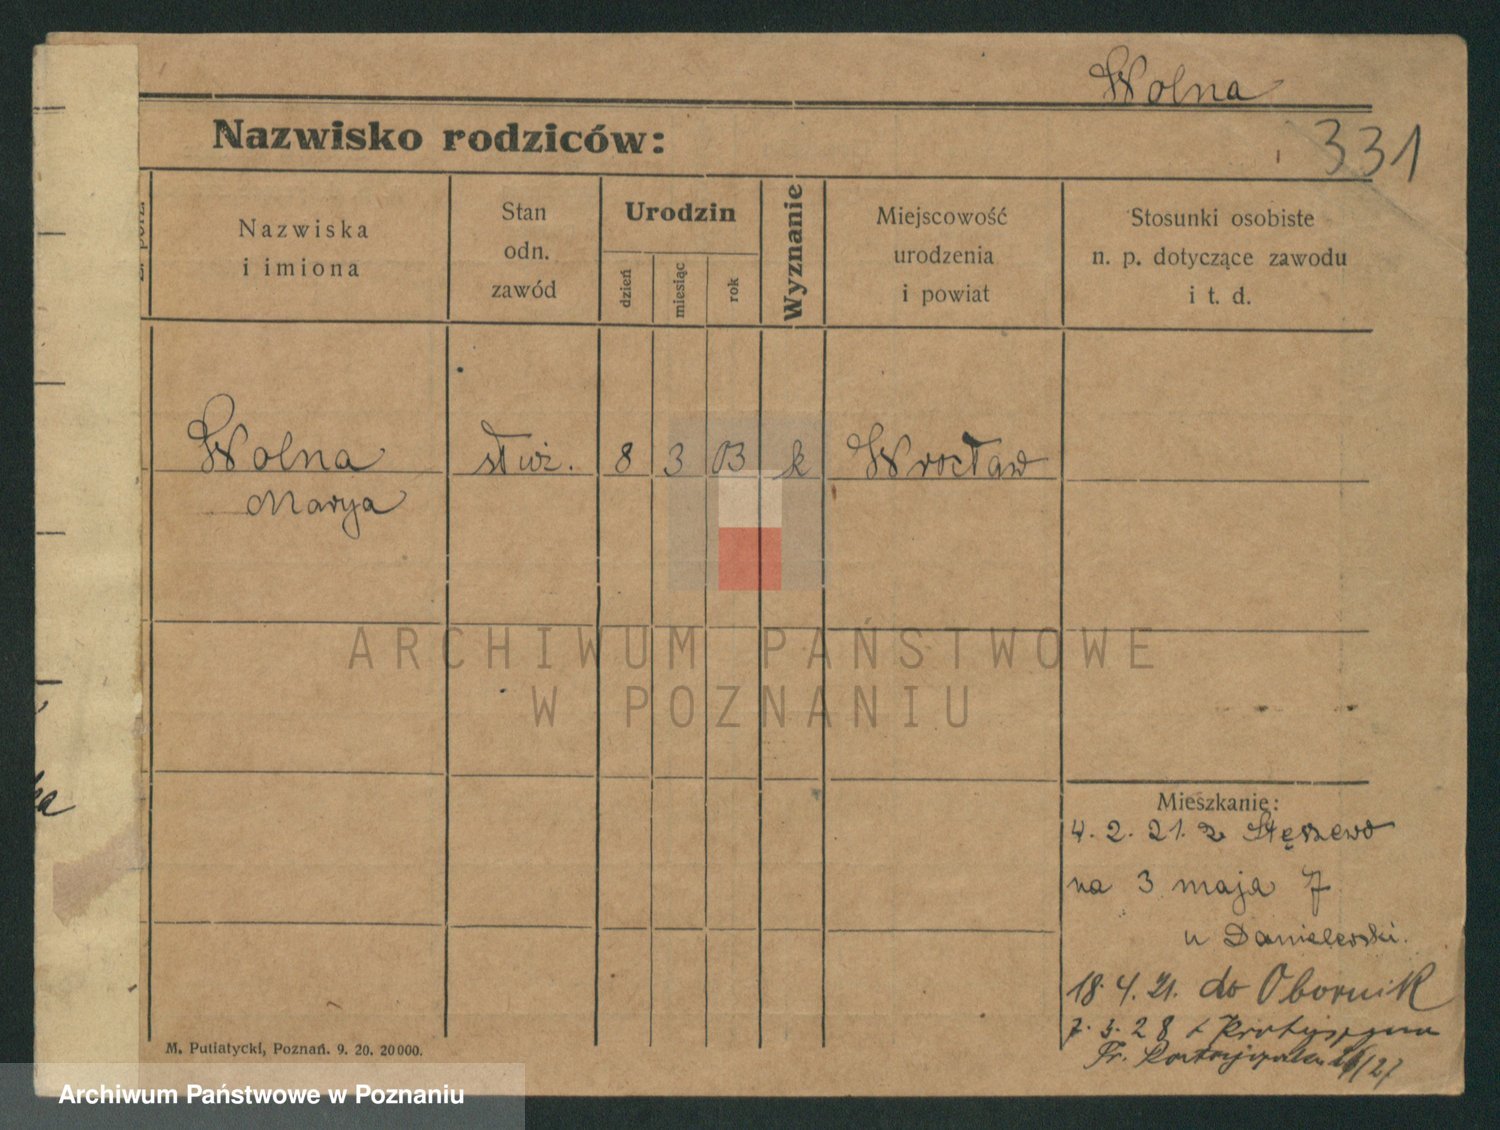 Wolna
Nazwisko rodziców:
331
Nazwiska
i imiona
Stan
odn.
zawód
Urodzin
dzień
miesiąc
rok
Wyznanie
Miejscowość
urodzenia
i powiat
Stosunki osobiste
n. p. dotyczące zawodu
i t. d.
Wolna służ. 8 3 03 k Wrocław
Marya
ARCHIWUM PAŃSTWOWE
W POZNANIU
Mieszkanie:
4. 2. 21. z Stęszewo
na 3 maja 7
u Danielewski.
18. 4. 21. do Obornik
7. 3. 28
Fr. 27
M. Putiatycki, Poznań. 9. 20. 20000.
Archiwum Państwowe w Poznaniu